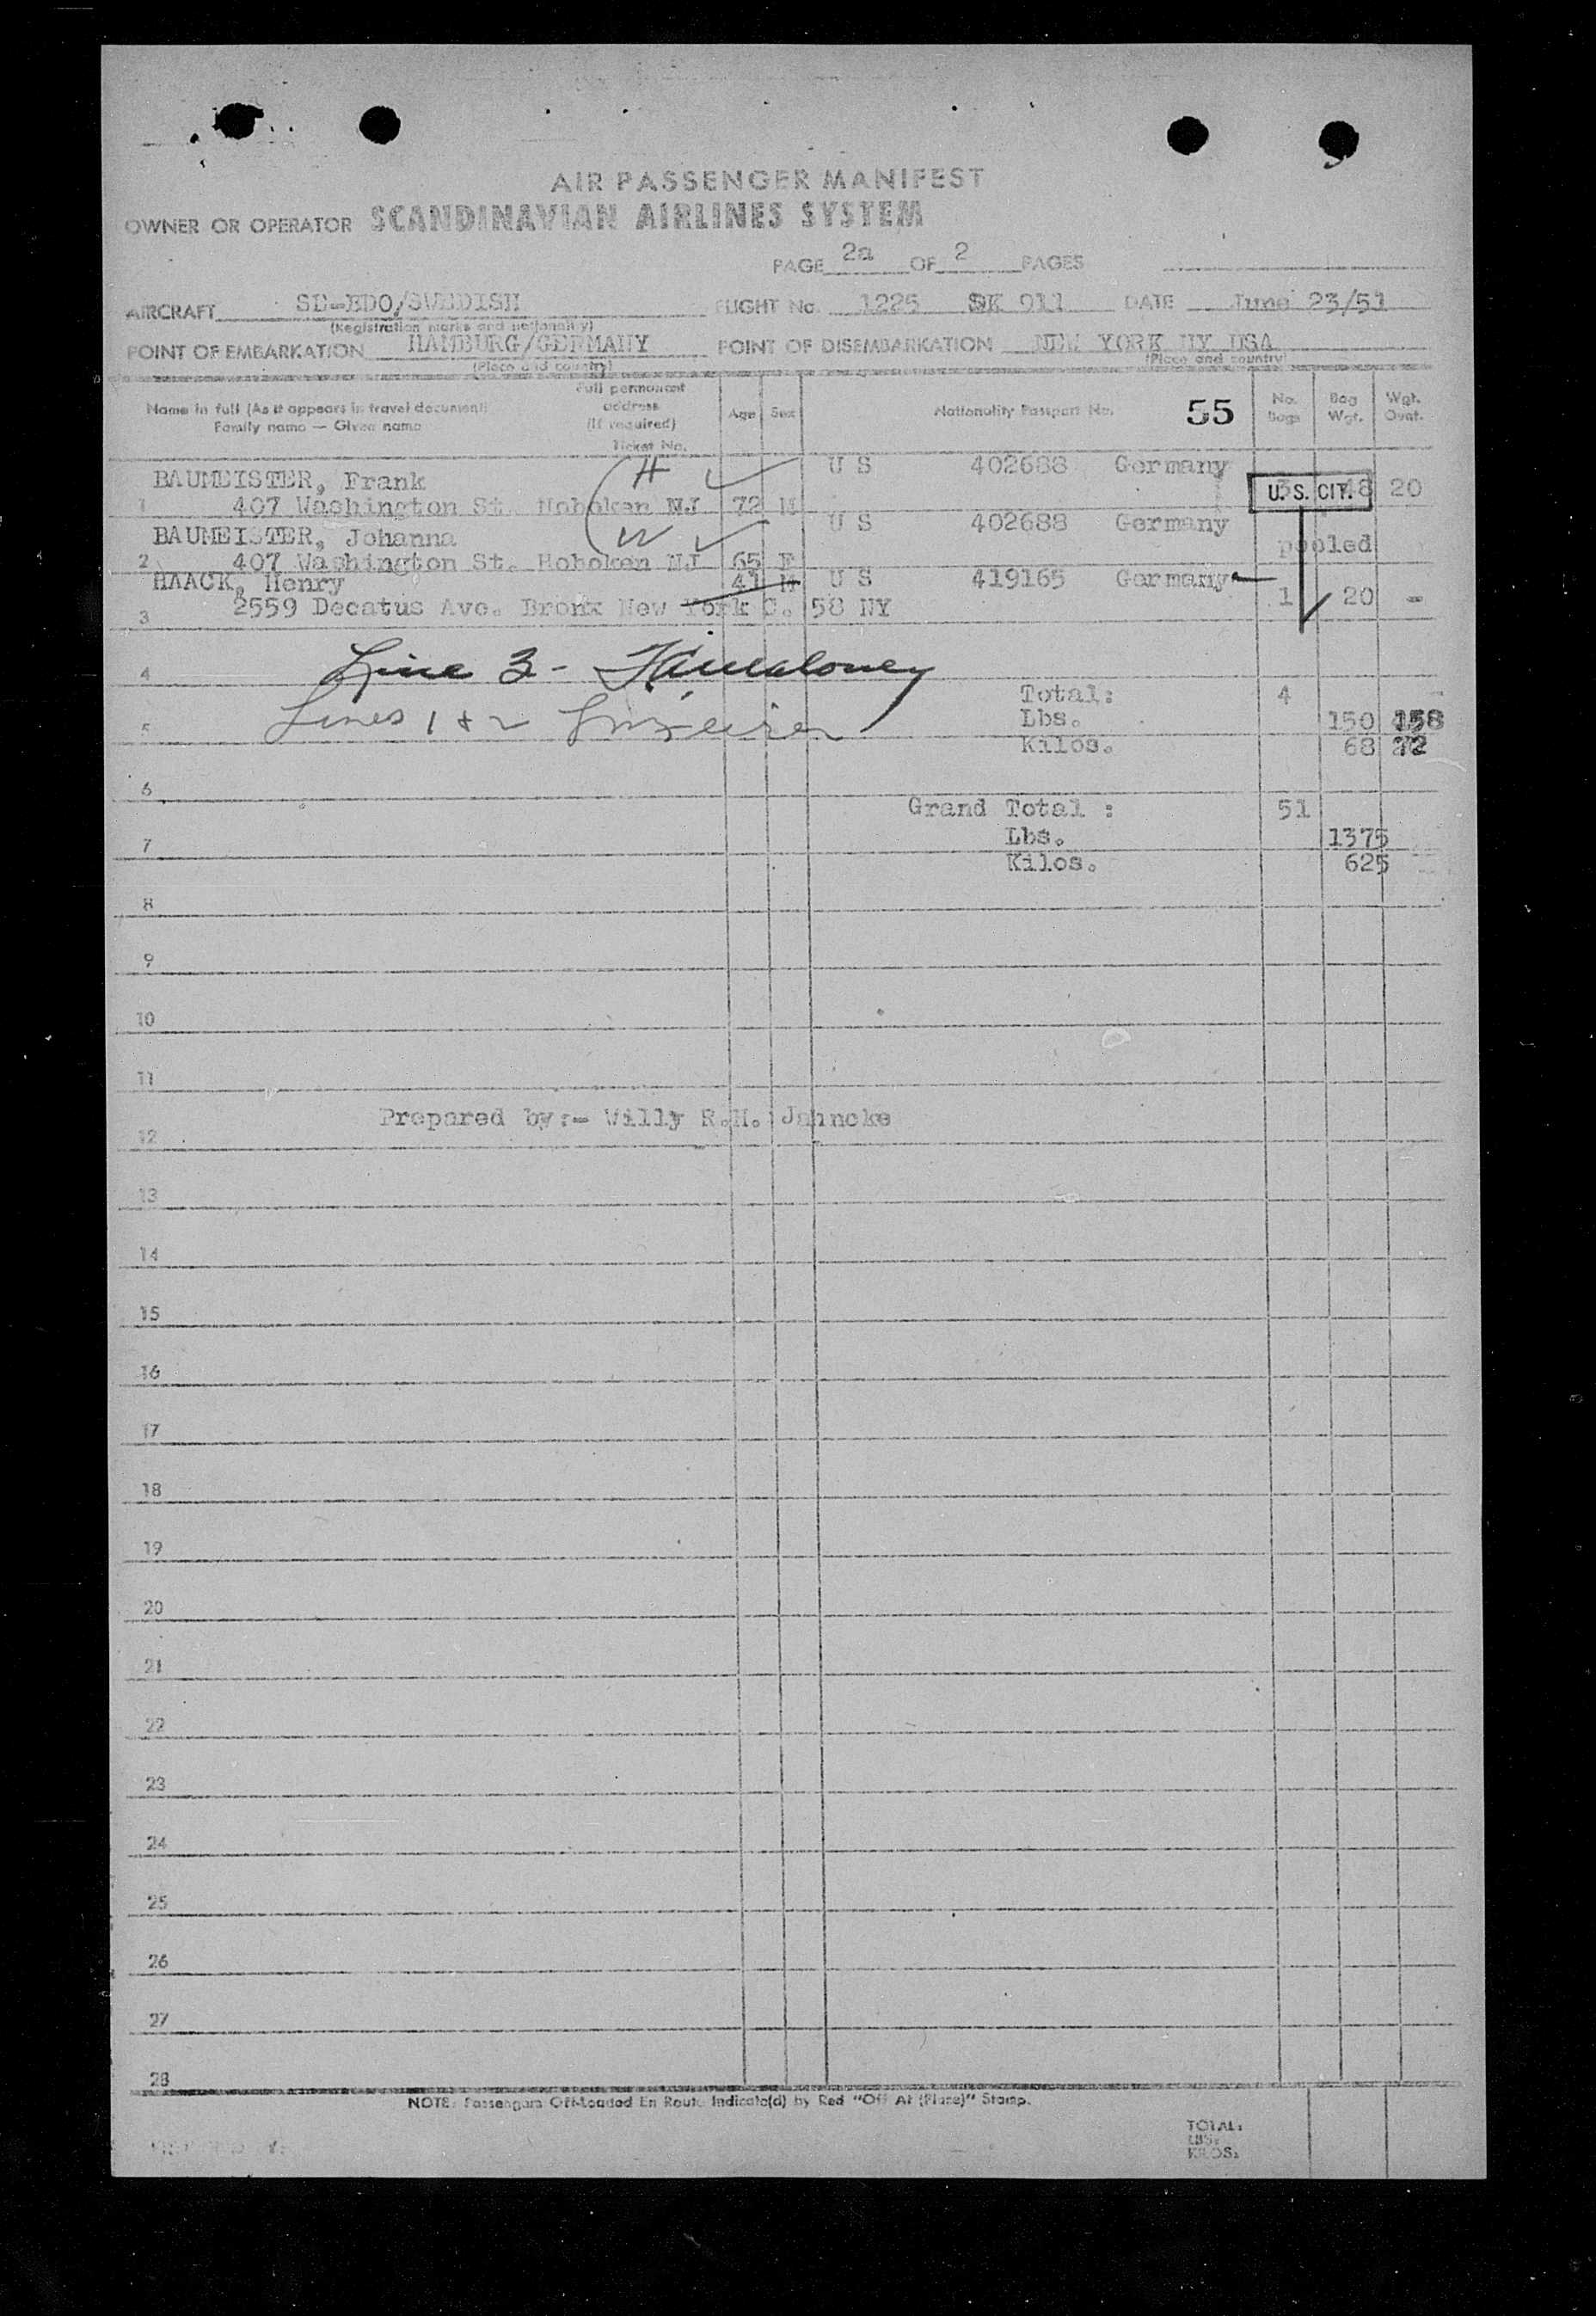 AIR PASSENGER MANIFEST
OWNER OR OPERATOR SCANDINAVIAN AIRLINES SYSTEM
PAGE 2a OF 2 PAGES
AIRCRAFT SE-BDO/SWEDISH FLIGHT No. 1225 SK 911 DATE June 23/51
(Registration marks and nationality)
POINT OF EMBARKATION HAMBURG/GERMANY POINT OF DISEMBARKATION NEW YORK NY USA
(Place and country) (Place and country)
Name in full (As it appears in travel document)
Family name — Given name
Full permanent
address
(If required)
Ticket No.
Age Sex Nationality Passport No. 55 No. Bags Bag Wgt. Wgt. Ovnt.
BAUMEISTER, Frank H U S 402688 Germany
1 407 Washington St. Hoboken NJ 72 M 3 48 20
U.S. CIT.
BAUMEISTER, Johanna W U S 402688 Germany
2 407 Washington St. Hoboken NJ 65 F pooled
HAACK, Henry 41 M U S 419165 Germany
3 2559 Decatus Ave. Bronx New York C. 58 NY 1 20 -
4 Line 3 -
Total: 4
5 Lines 1 & 2
Lbs. 150 158
Kilos. 68 72
6
Grand Total : 51
7 Lbs. 1375
Kilos. 625
8
9
10
11
Prepared by:- Willy R.H. Jahncke
12
13
14
15
16
17
18
19
20
21
22
23
24
25
26
27
28
NOTE: Passengers Off-Loaded En Route Indicate(d) by Red "Off At (Place)" Stamp.
TOTAL:
LBS:
KILOS: